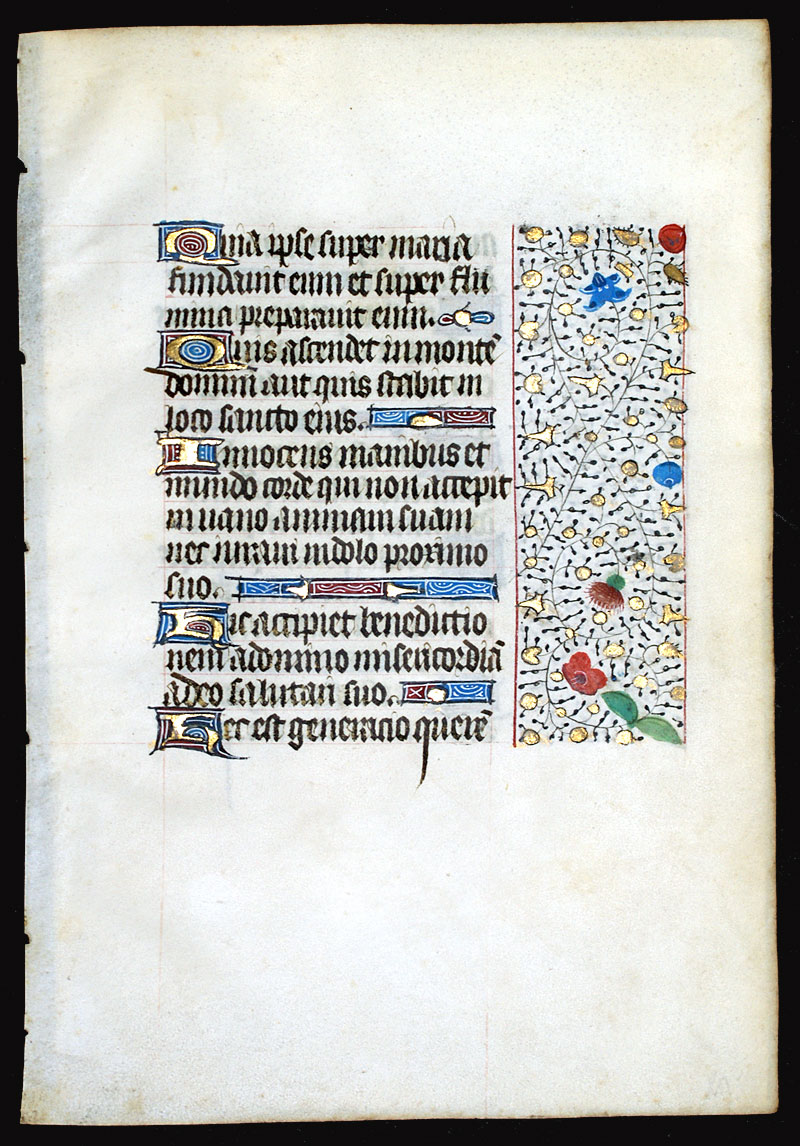 Quia ipse super maria
fundavit eum et super flu
mina preparavit eum.
Quis ascendet in monte̅
domini aut quis stabit in
loco sancto eius.
Innocens manibus et
mundo corde qui non accepit
in vano animam suam
nec iuravit in dolo proximo
suo.
Hic accipiet benedictio
nem a domino misericordia̅
a deo salutari suo.
Hec est generacio quere̅